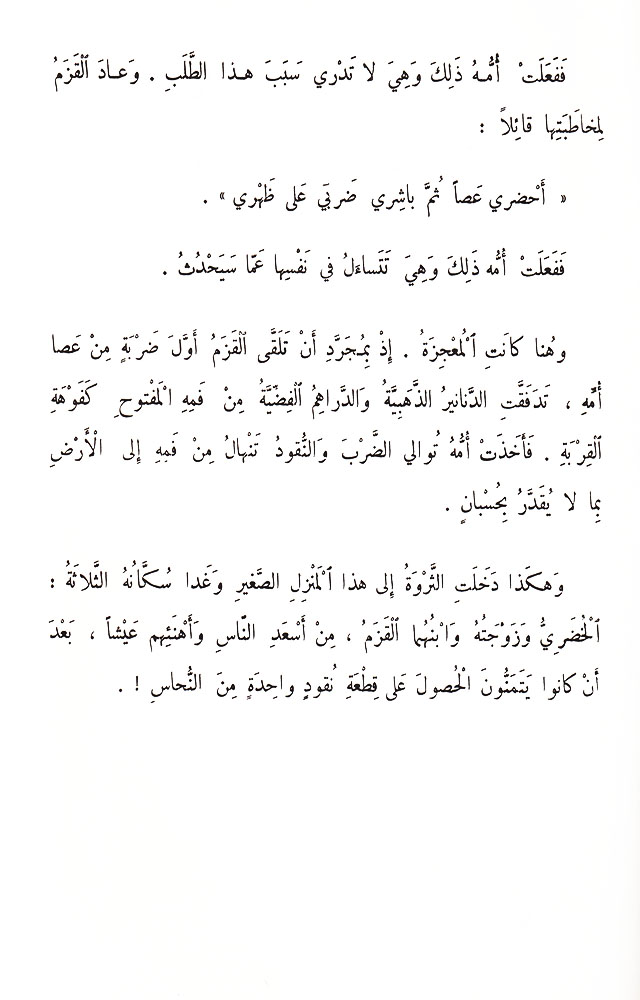 فَفَعَلَتْ أُمُّهُ ذَلِكَ وَهِيَ لا تَدْري سَبَبَ هذا الطَّلَبِ . وَعادَ ٱلْقَزَمُ
لِمخاطَبَتِها قائِلاً :
« أَحْضري عَصاً ثُمَّ باشِري ضَربيَ عَلى ظَهْري » .
فَفَعَلَتْ أُمُّه ذَلِكَ وَهِيَ تَتَساءَلُ في نَفْسِها عَمّا سَيَحْدُثُ .
وهُنا كانَتِ ٱلْمُعْجِزَةُ . إِذْ بِمُجَرَّدِ أَنْ تَلَقَّى ٱلْقَزَمُ أَوَّلَ ضَرْبَةٍ مِنْ عَصا
أُمِّهِ ، تَدَفَّقَتِ الدَّنانيرُ الذَّهَبِيَّةُ وَالدَّراهِمُ ٱلْفِضِّيَّةُ مِنْ فَمِهِ الْمَفْتوحِ كَفَوْهَةِ
ٱلْقِرْبَةِ . فَأَخَذَتْ أُمُّهُ تُوالي الضَّرْبَ وَالنُّقودُ تَنْهالُ مِنْ فَمِهِ إِلى الْأَرْضِ
بِما لا يُقَدَّرُ بِحُسْبانٍ .
وَهكَذا دَخَلَتِ الثَّرْوَةُ إِلى هذا ٱلْمَنْزِلِ الصَّغيرِ وَغَدا سُكَّانُهُ الثَّلاثَةُ :
ٱلْخُضَرِيُّ وَزَوْجَتُهُ وَابْنُهُما ٱلْقَزَمُ ، مِنْ أَسْعَدِ النّاسِ وَأَهْنَئِهِم عَيْشاً ، بَعْدَ
أَنْ كانوا يَتَمَنُّونَ الْحُصولَ عَلى قِطْعَةِ نُقودٍ واحِدَةٍ مِنَ النُّحاسِ ! .